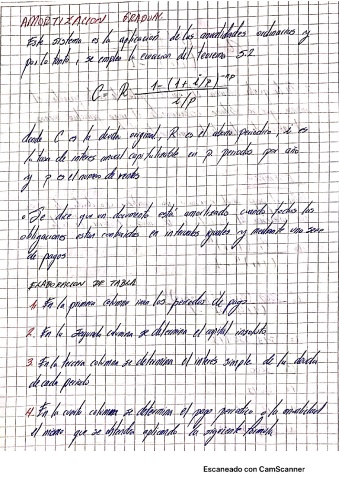 AMORTIZACION GRADUAL
Este sistema es la aplicacion de las anualidades ordinarias y
por lo tanto, se emplea la ecuacion del teorema 5.2
C = R 1-(1+i/p)^-np / i/p
donde C es la deuda original, R es el abono periodico, i es
la tasa de interes anual capitalizable en p periodos por año
y es el numero de
• Se dice que un documento está amortizando cuando todas las
obligaciones estan contraidas en intervalos iguales y mediante una serie
de pagos
ELABORACION DE TABLA
1. En la primera columna van los periodos de pago
2. En la segunda columna se determina el capital insoluto
3. En la tercera columna se determina el interés simple de la deuda
de cada periodo
4. En la cuarta columna se determina el pago periodico o la anualidad
el mismo que se obtendra aplicando la siguiente formula
Escaneado con CamScanner